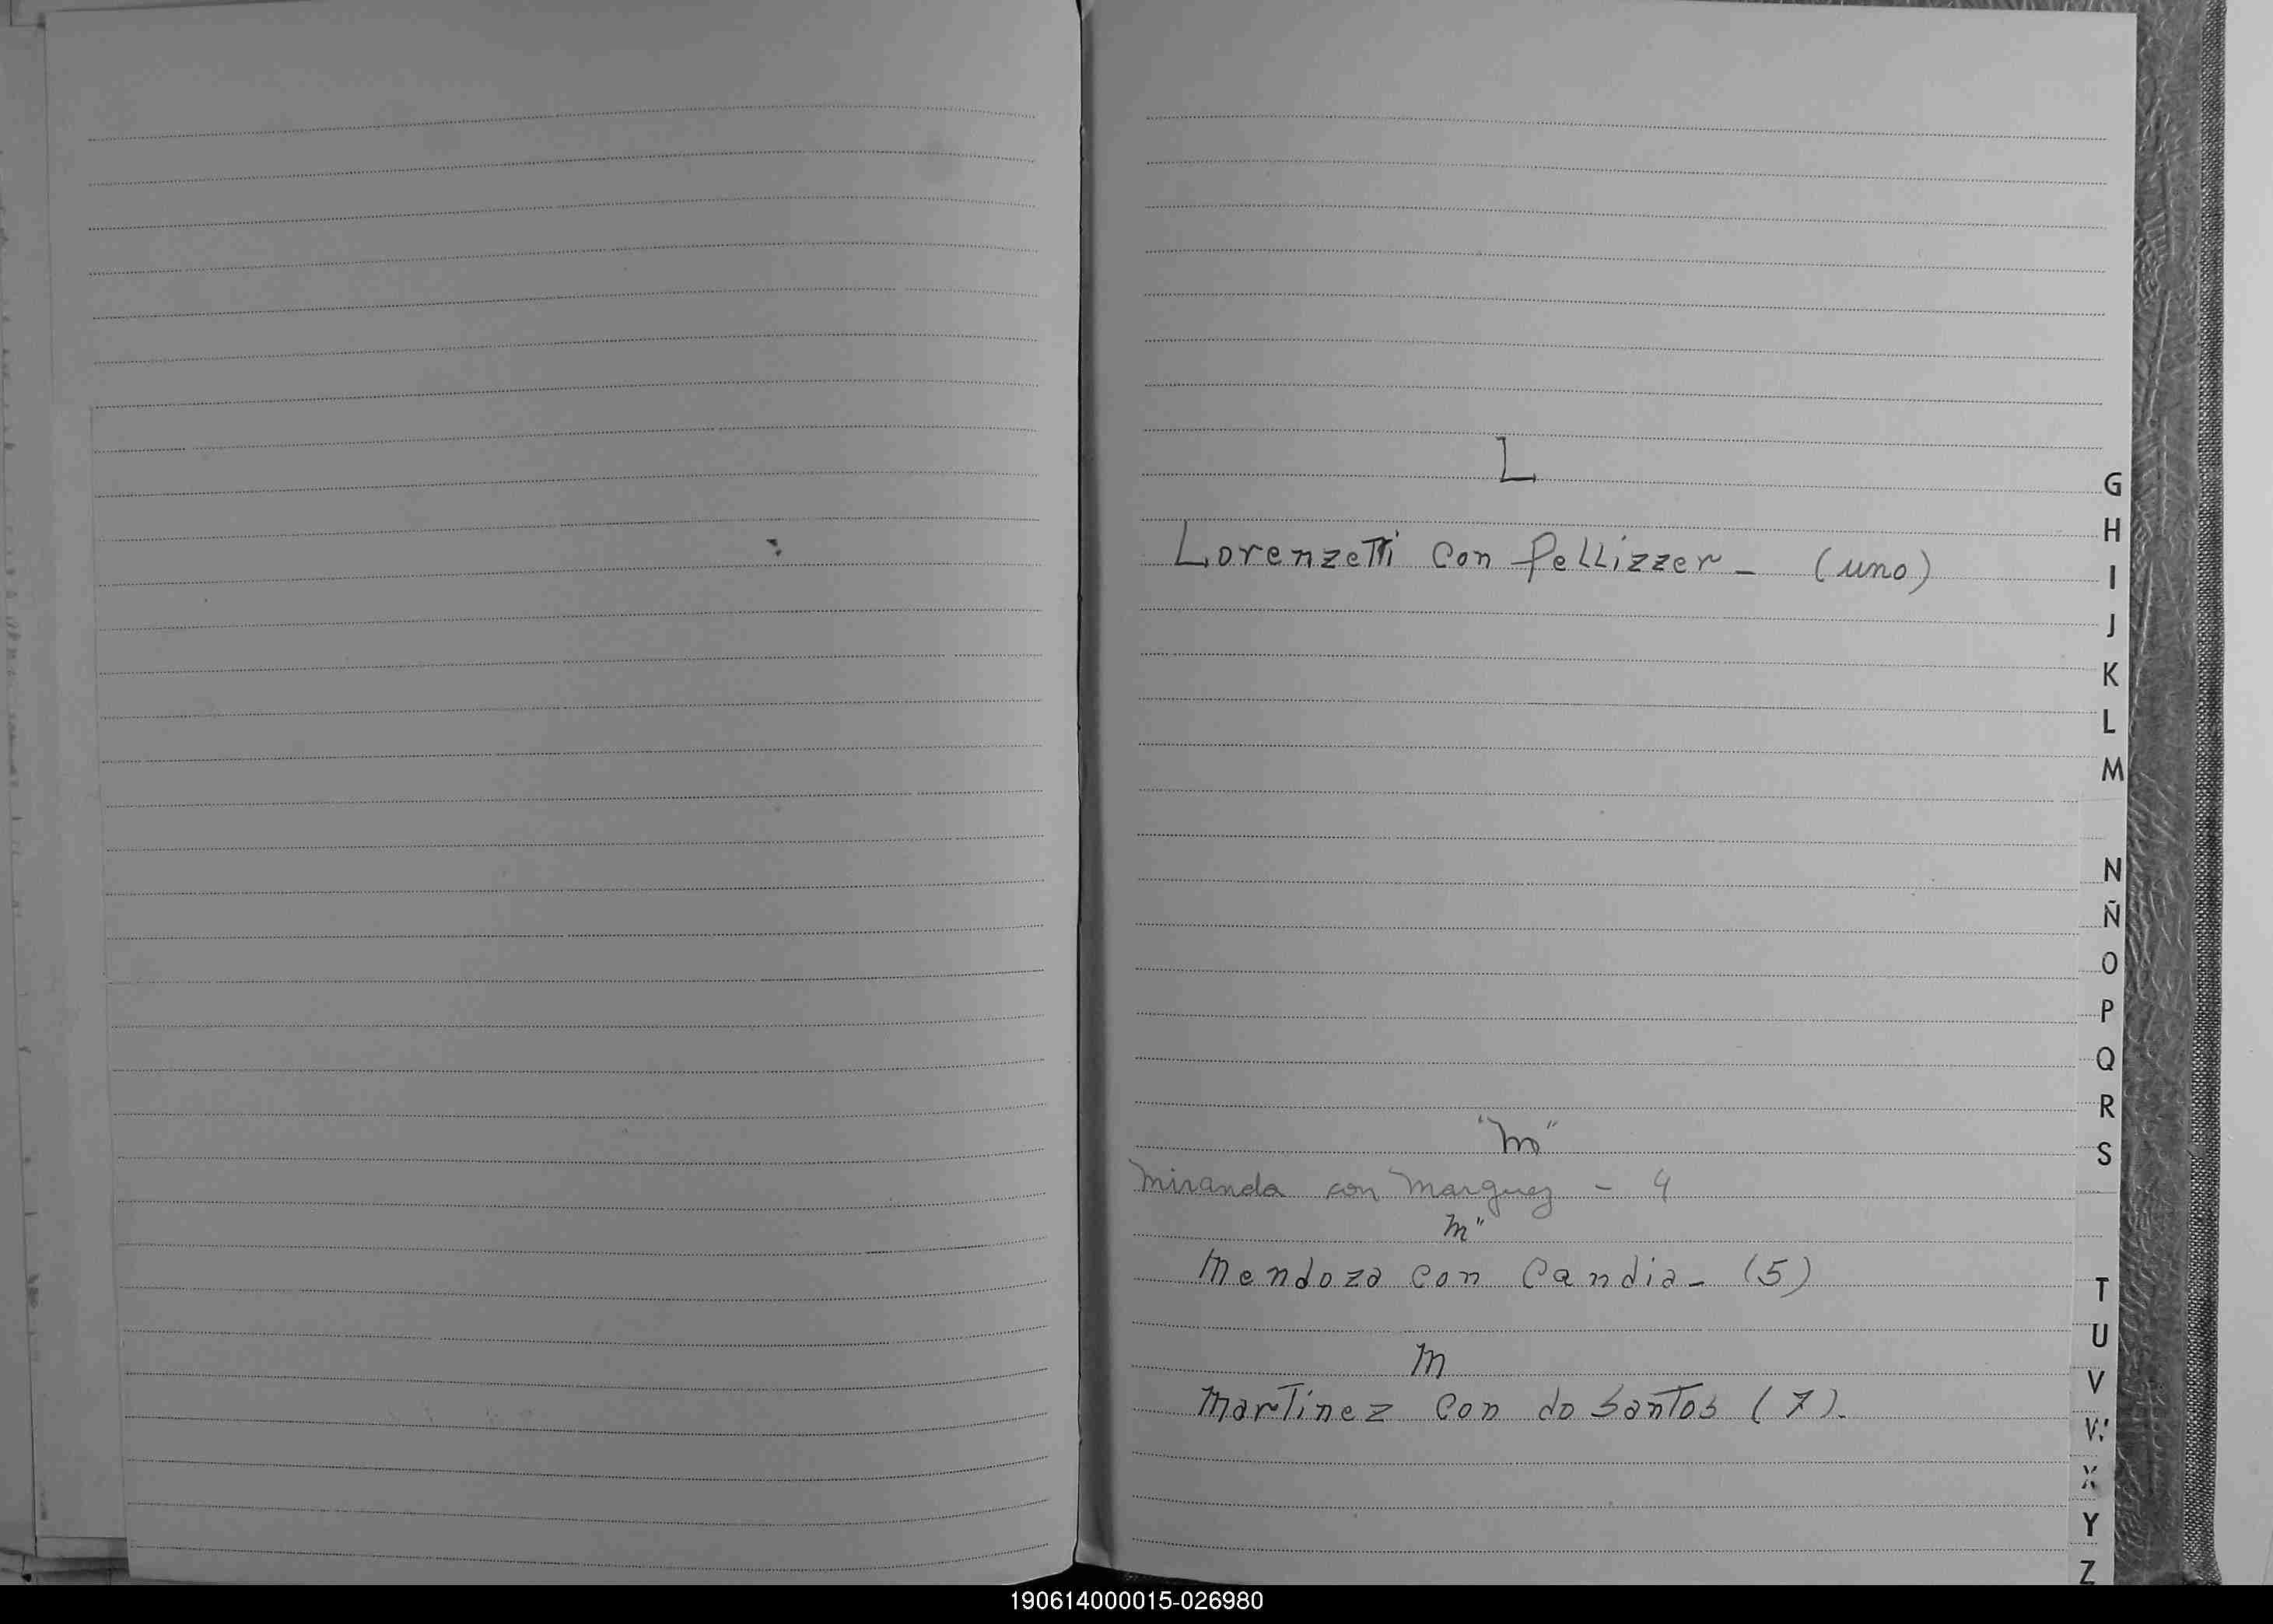 L
Lorenzetti con Pellizzer - (uno)
"M"
Miranda con Marquez - 4
M"
Mendoza con Candia - (5)
M
Martinez con do Santos (7).
G
H
I
J
K
L
M
N
Ñ
O
P
Q
R
S
T
U
V
W
X
Y
Z
190614000015-026980